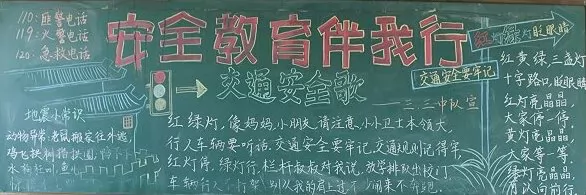 110：匪警电话
119：火警电话
120：急救电话
安全教育伴我行
红灯绿灯眨眼睛
交通安全歌
——三.三中队宣
交通安全要牢记
红黄绿，三盏灯
十字路口，眨眼睛
红灯亮晶晶，
大家停一停，
黄灯亮晶晶，
大家等一等，
绿灯亮晶晶，
地震小常识
动物异常：老鼠搬家往外逃，
红绿灯，像妈妈，小朋友，请注意，小小卫士本领大，
行人车辆要听话，交通安全要牢记，交通规则记得牢，
红灯停，绿灯行，栏杆叔叔对我说，放学排队出校门，
车辆行